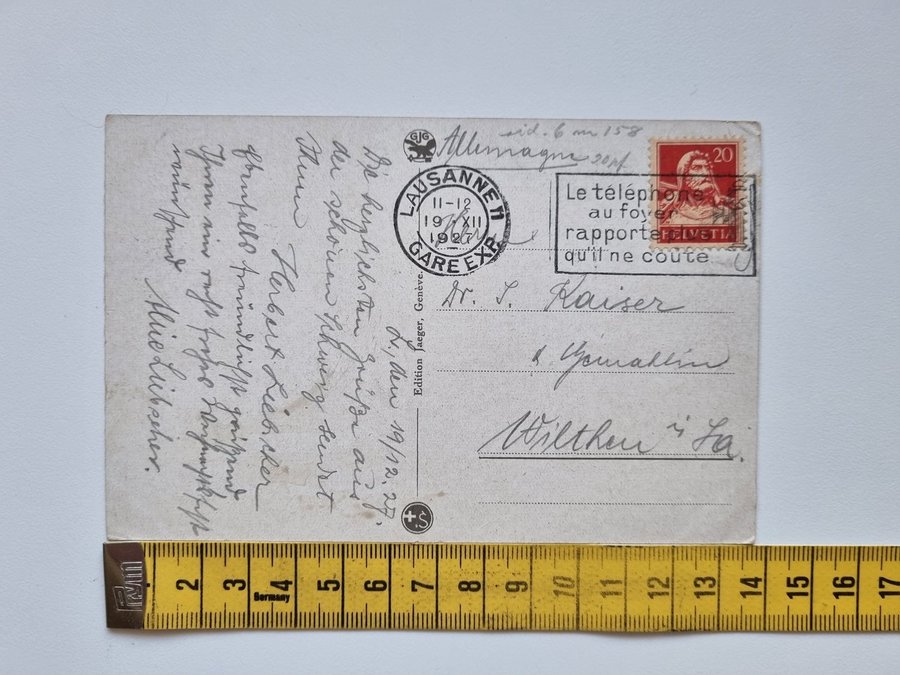 GJG
Allemagne
20 pf
LAUSANNE 11
11-12
19·XII
1927
GARE EXP.
Le téléphone
au foyer
rapporte
qu'il ne coûte
20
HELVETIA
Dr. S. Kaiser
& Gemahlin
Wilthen i/Sa.
Edition Jaeger, Genève.
L., den 19/12.27.
Die herzlichsten Grüße aus
der schönen Schweiz sendet
Ihnen Herbert Liebscher
Ebenfalls freundlichst grüßend
Ihnen ein recht frohes Weihnachtsfest
wünschend
Liebscher.
2 3 4 5 6 7 8 9 10 11 12 13 14 15 16 17
Germany